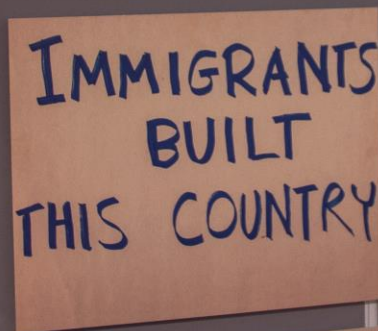 IMMIGRANTS
BUILT
THIS COUNTRY